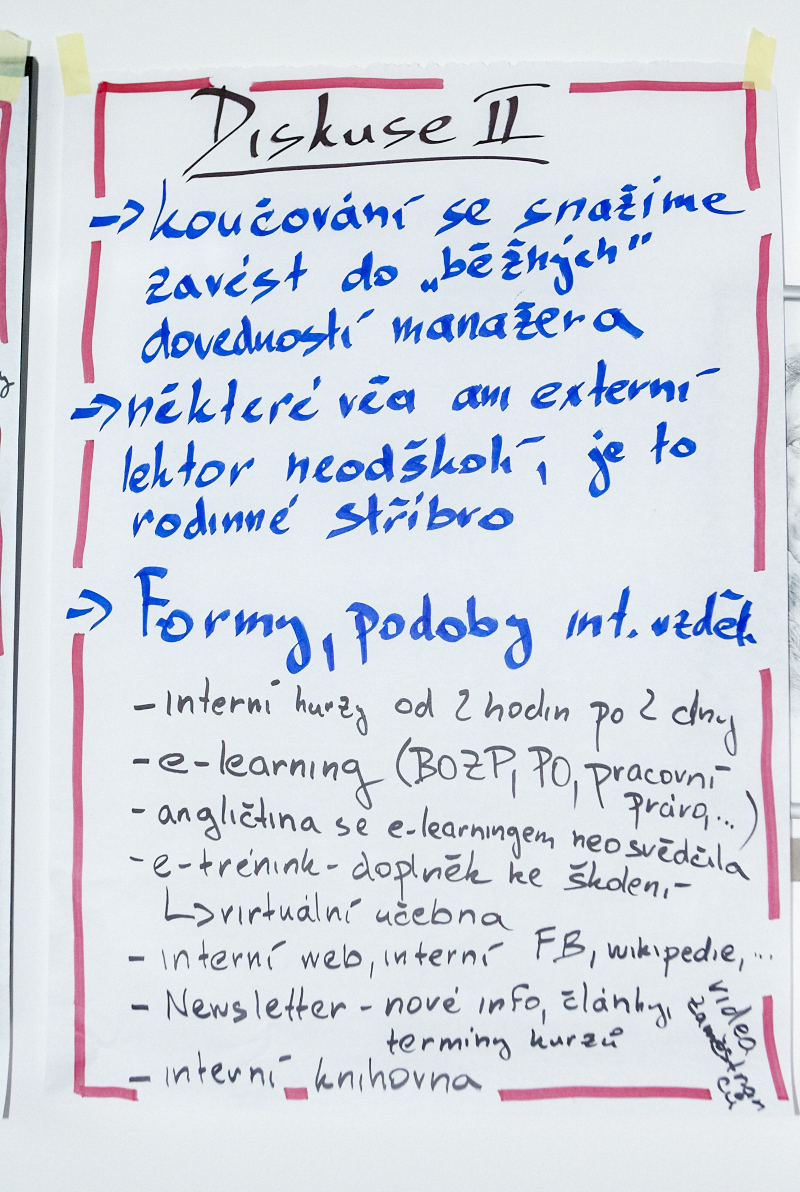 Diskuse II
-> koučování se snažíme
zavést do „běžných"
dovedností manažera
-> některé věci ani externí
lektor neodškolí, je to
rodinné stříbro
-> Formy, podoby int. vzděl.
- interní kurzy od 2 hodin po 2 dny
- e-learning (BOZP, PO, pracovní
právo,...)
- angličtina se e-learningem neosvědčila
- e-trénink - doplněk ke školení
↳ virtuální učebna
- interní web, interní FB, wikipedie,...
- Newsletter - nové info, články,
termíny kurzů
videa
zaměstnan
ců
- interní knihovna